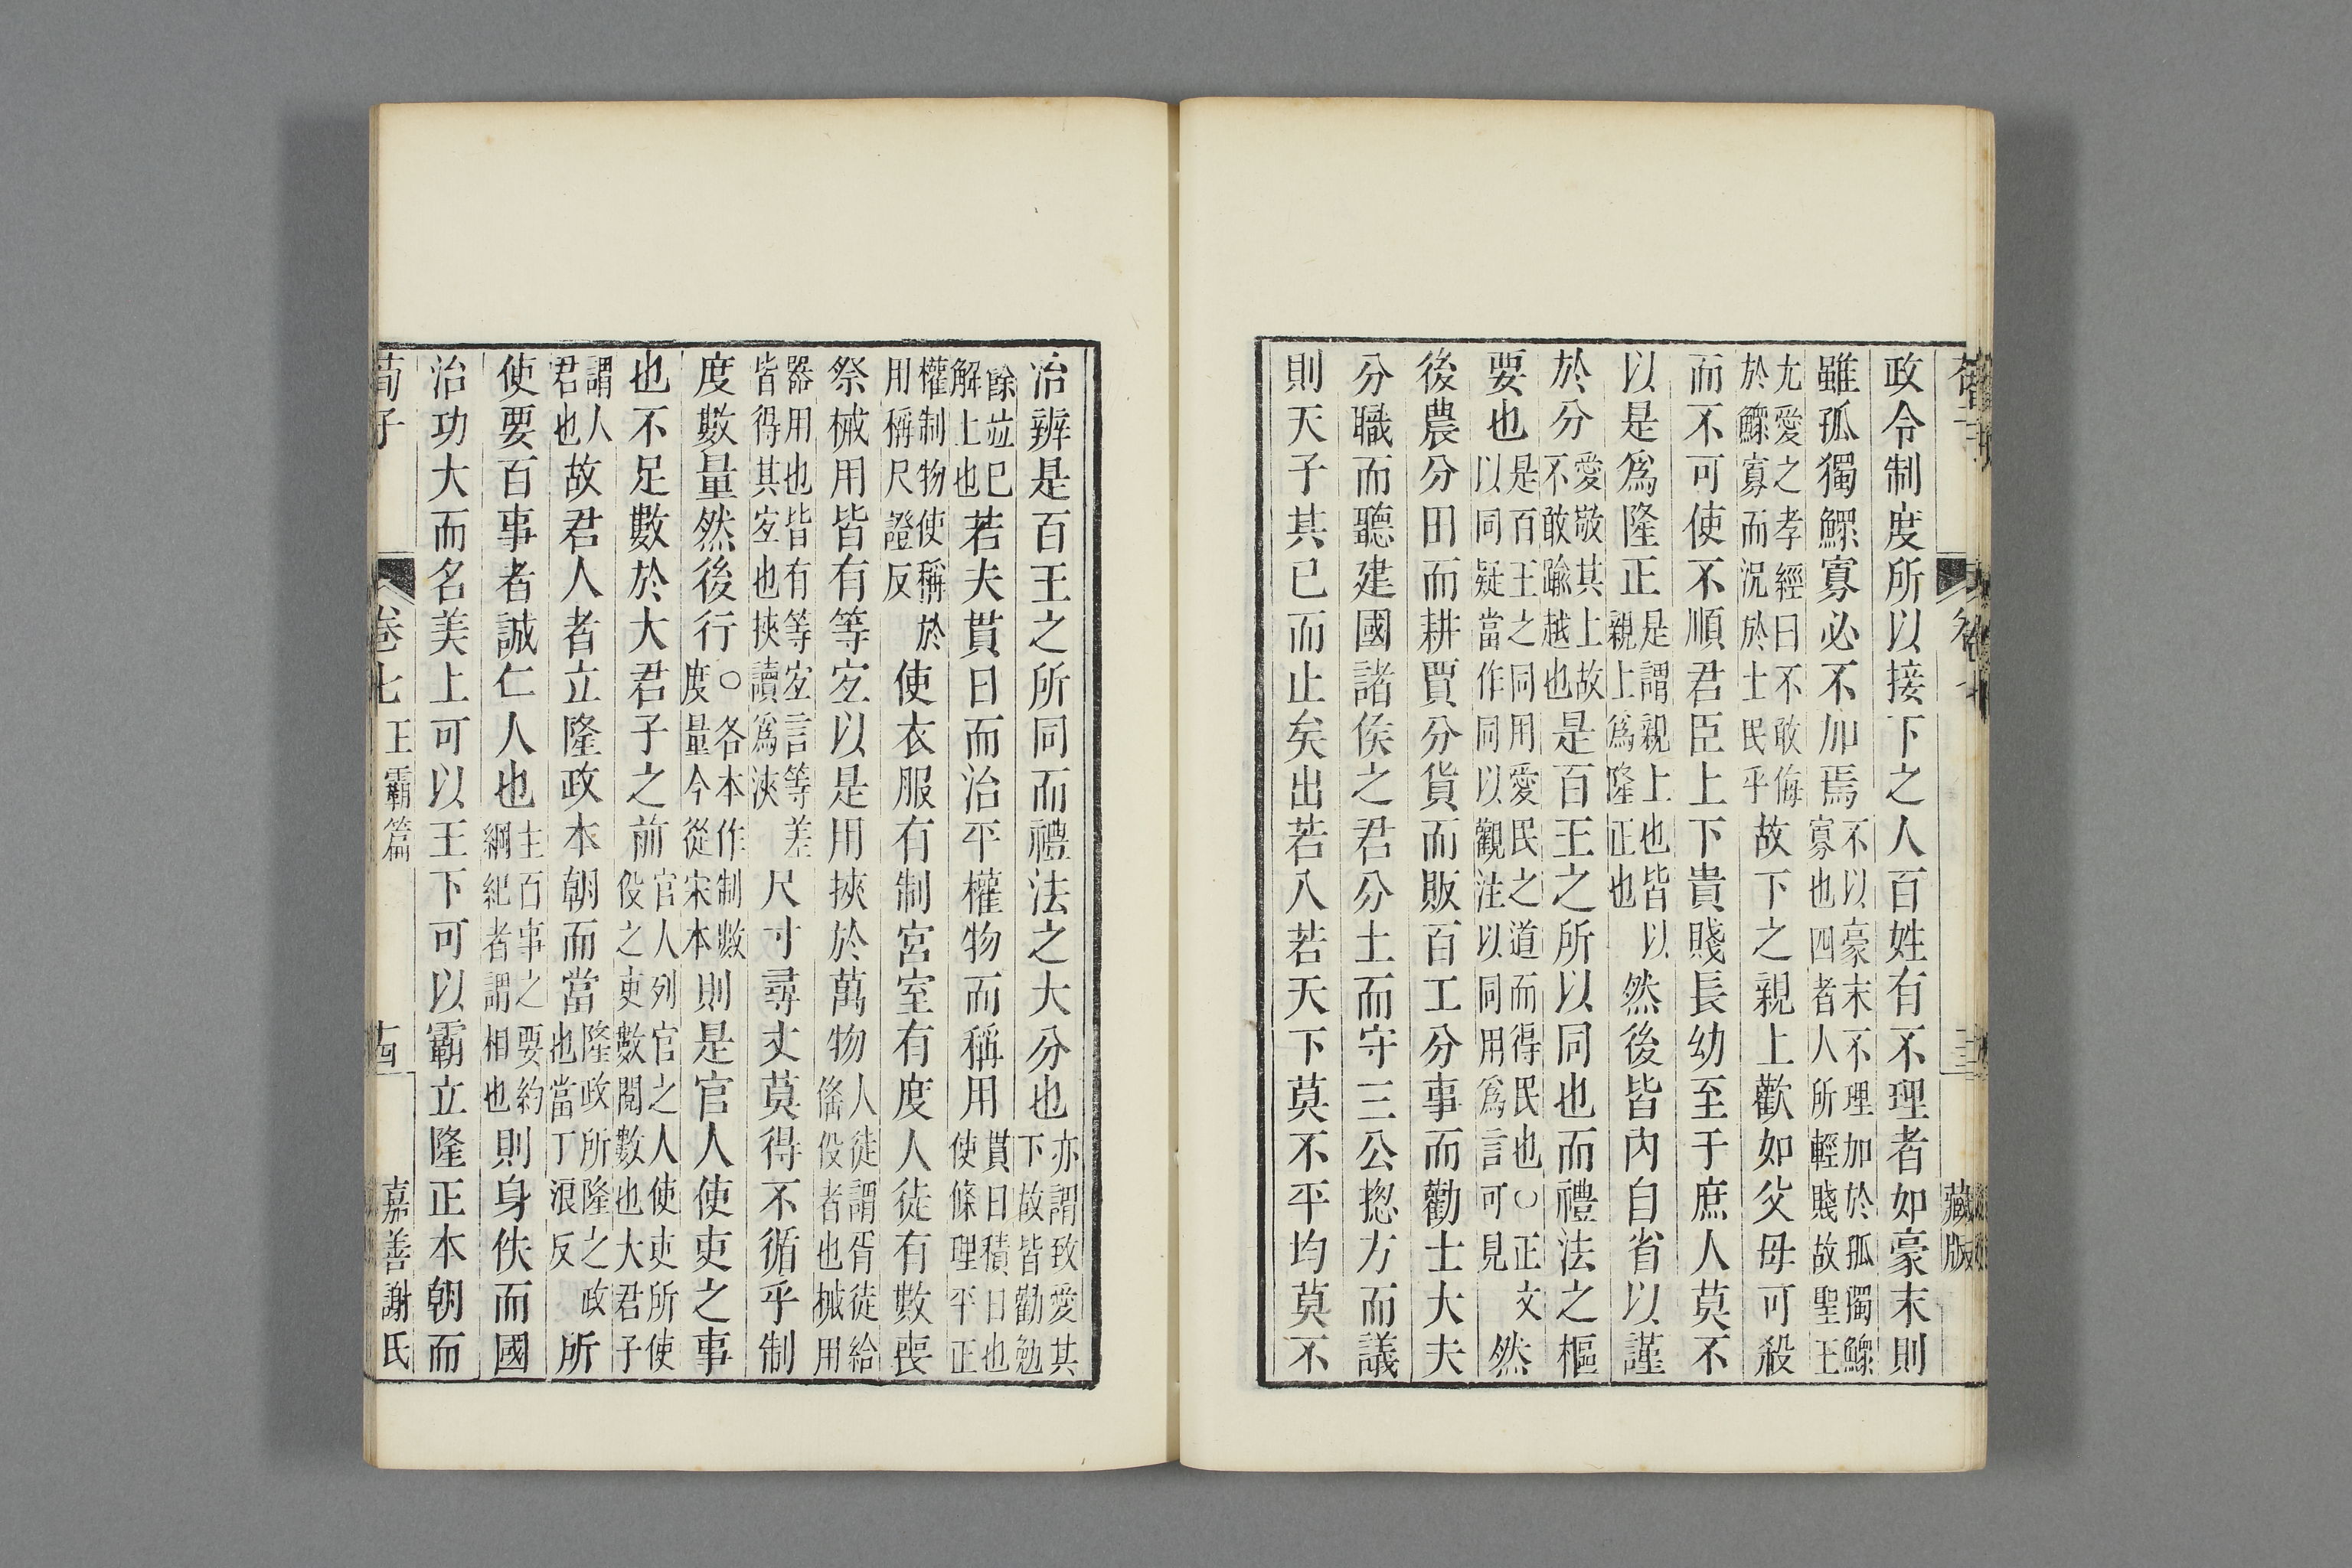 藏版
政令制度所以接下之人百姓有不理者如豪末則
雖孤獨鰥寡必不加焉不以豪末不理加於孤獨鰥寡也四者人所輕賤故聖王
尤愛之孝經曰不敢侮於鰥寡而況於士民乎故下之親上歡如父母可殺
而不可使不順君臣上下貴賤長幼至于庶人莫不
以是爲隆正是謂親上也皆以親上爲隆正也然後皆內自省以謹
於分愛敬其上故不敢踰越也是百王之所以同也而禮法之樞
要也是百王之同用愛民之道而得民也○正文以同疑當作同以觀注以同用爲言可見然
後農分田而耕賈分貨而販百工分事而勸士大夫
分職而聽建國諸侯之君分土而守三公揔方而議
則天子其已而止矣出若入若天下莫不平均莫不
治辨是百王之所同而禮法之大分也亦謂致愛其下故皆勸勉
餘竝已解上也若夫貫日而治平權物而稱用貫日積日也使條理平正
權制物使稱於用稱尺證反使衣服有制宮室有度人徒有數喪
祭械用皆有等宐以是用挾於萬物人徒謂胥徒給傜役者也械用
器用也皆有等宐言等差皆得其宐也挾讀爲浹尺寸尋丈莫得不循乎制
度數量然後行○各本作制數度量今從宋本則是官人使吏之事
也不足數於大君子之前官人列官之人使吏所使役之吏數閱數也大君子
謂人君也故君人者立隆政本朝而當隆政所隆之政也當丁浪反所
使要百事者誠仁人也主百事之要約綱紀者謂相也則身佚而國
治功大而名美上可以王下可以霸立隆正本朝而
荀子 卷七 王霸篇 十四 嘉善謝氏